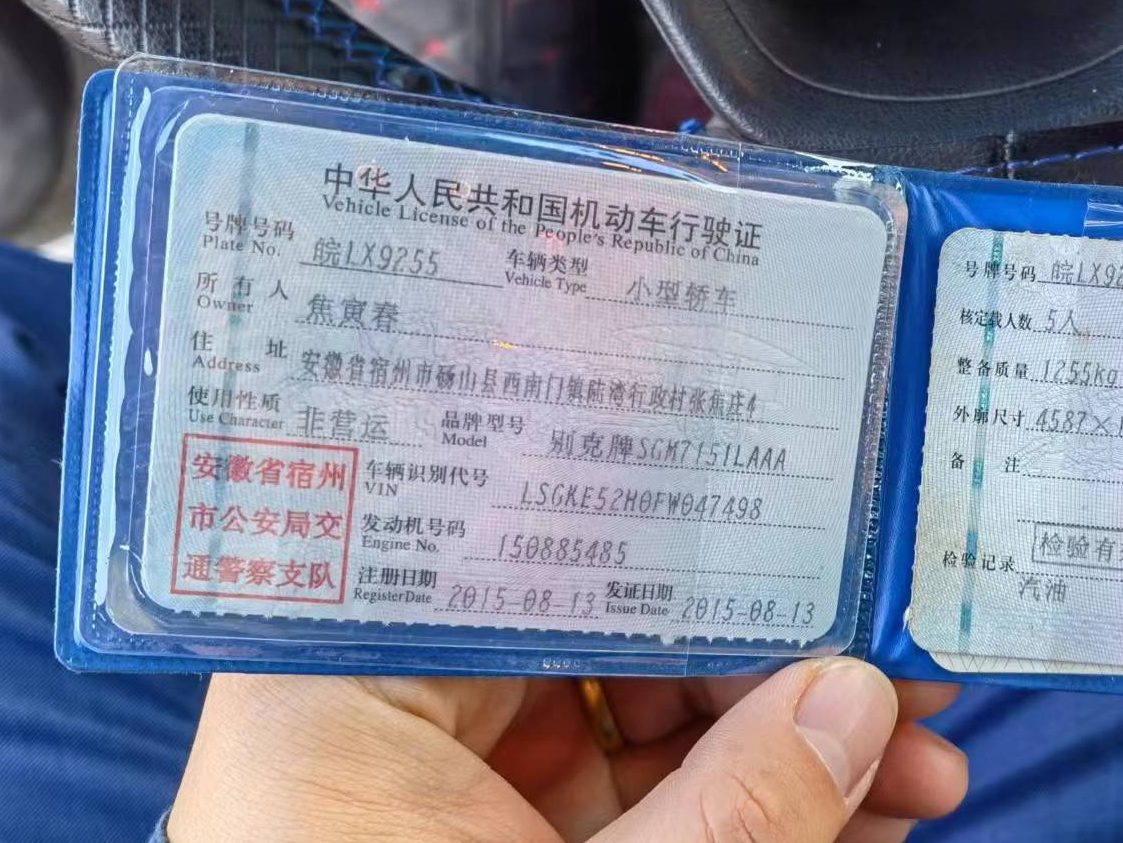 中华人民共和国机动车行驶证
Vehicle License of the People's Republic of China
号牌号码 皖LX9255 车辆类型 小型轿车
Plate No. Vehicle Type
所有人 焦寅春
Owner
住址 安徽省宿州市砀山县西南门镇陆湾行政村张焦庄4
Address
使用性质 非营运 品牌型号 别克牌SGM7151LAAA
Use Character Model
安徽省宿州
市公安局交
通警察支队
车辆识别代号 LSGKE52H0FW047498
VIN
发动机号码 150885485
Engine No.
注册日期 2015-08-13 发证日期 2015-08-13
Register Date Issue Date
号牌号码 皖LX92
核定载人数 5人
整备质量 1255kg
外廓尺寸 4587×
备注
检验记录 检验有
汽油